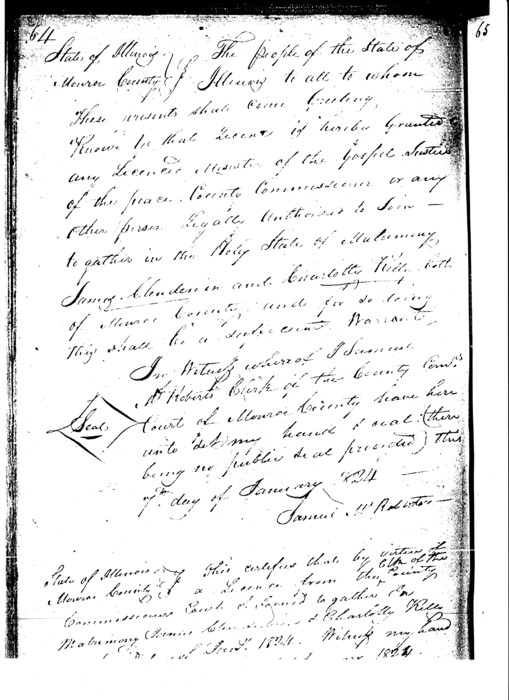 64
65
State of Illinois } The people of the State of
Monroe County } Illinois to all to whom
These presents shall come Greeting
Know ye that Licence is hereby Granted to
any Licenced Minister of the Gospel Justice
of the peace County Commissioner or any
other person Legally Authorised to Join —
to gather in the Holy State of Matrimony
James Clendenin and Charlotty Kelly both
of Monroe County and for so doing
this shall be a sufficient Warrant
In Witness whereof I Samuel
McRoberts Clerk of the County Coms
Seal
Court of Monroe County have here
unto set my hand & seal (there
being no public seal provided) this
7th day of January 1824 —
Samuel McRoberts —
State of Illinois } This certifies that by virtue of
Monroe County } a Licence from the Clk of the County
Commissioners Court I Joined to gather in
Matrimony James Clendenin & Charlotty Kelly
day of Jany. 1824. Witness my hand
1824